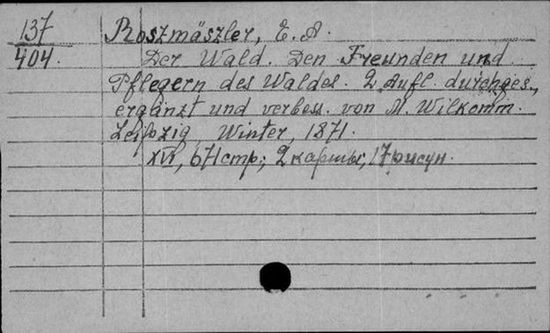 137
404.
Roszmäszler, E. A.
Der Wald. Den Freunden und
Pflegern des Waldes. 2 Aufl. durchges.,
ergänzt und verbess. von M. Wilkomm.
Leipzig Winter, 1871.
XVI, 671 стр; 2 карты, 17 рисун.